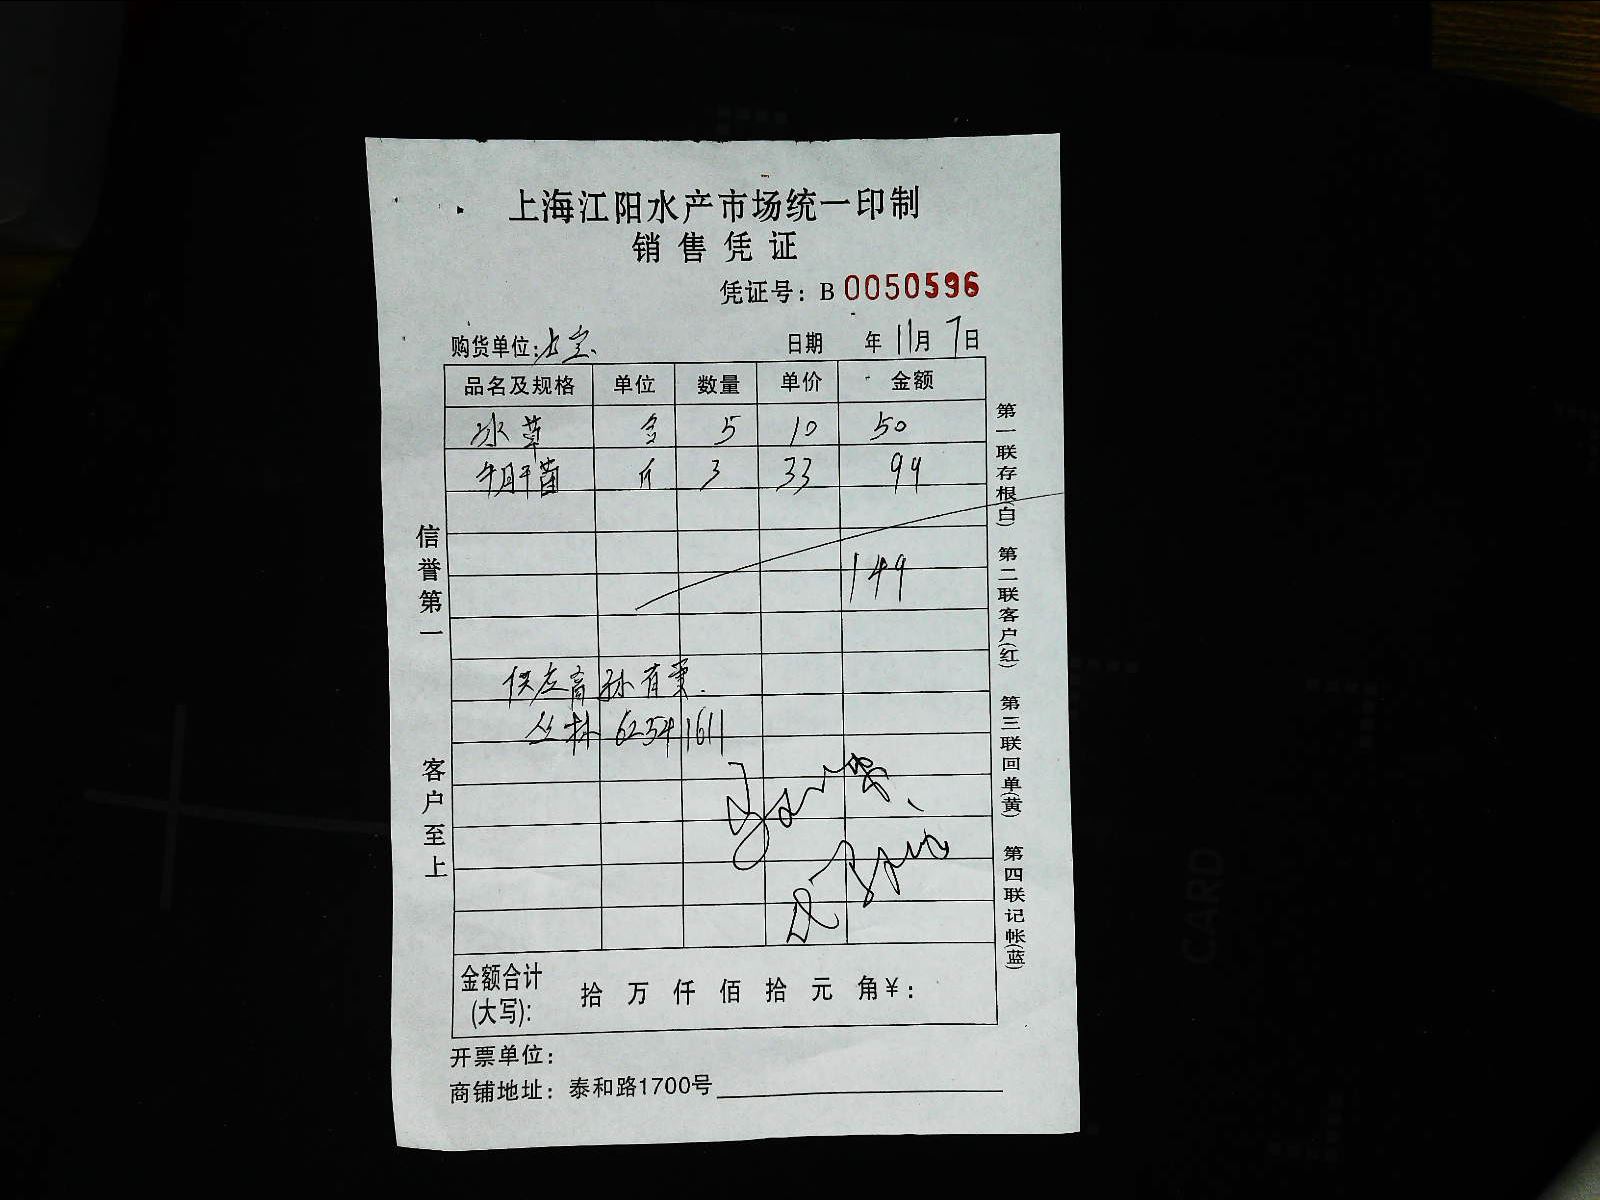 上海江阳水产市场统一印制
销售凭证
凭证号：B 0050596
购货单位： 日期 年 11月 7日
品名及规格 单位 数量 单价 金额
冰草 5 10 50
斤 3 33 99
149
孙
丛林 62541611
信誉第一
客户至上
第一联存根(白) 第二联客户(红) 第三联回单(黄) 第四联记帐(蓝)
金额合计 拾 万 仟 佰 拾 元 角￥：
(大写)：
开票单位：
商铺地址：泰和路1700号